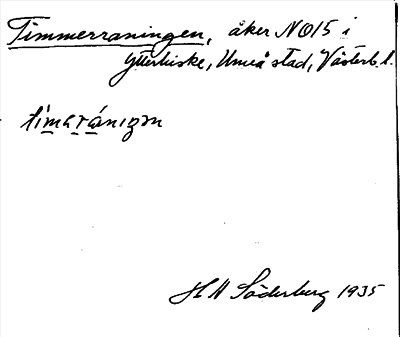 Timmerraningen, åker NO15 i
Ytterhiske, Umeå stad, Västerb. l.
H N Söderberg 1935